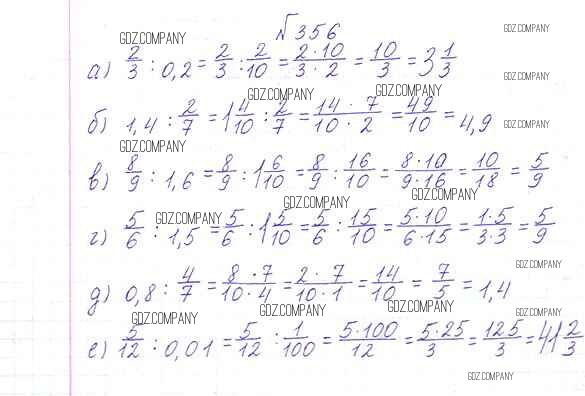 №356
GDZ.COMPANY GDZ.COMPANY
а) 2/3 : 0,2 = 2/3 : 2/10 = 2·10/3·2 = 10/3 = 3 1/3
GDZ.COMPANY
GDZ.COMPANY GDZ.COMPANY
б) 1,4 : 2/7 = 1 4/10 : 2/7 = 14·7/10·2 = 49/10 = 4,9
GDZ.COMPANY
GDZ.COMPANY
в) 8/9 : 1,6 = 8/9 : 1 6/10 = 8/9 : 16/10 = 8·10/9·16 = 10/18 = 5/9
GDZ.COMPANY GDZ.COMPANY
GDZ.COMPANY
г) 5/6 : 1,5 = 5/6 : 1 5/10 = 5/6 : 15/10 = 5·10/6·15 = 1·5/3·3 = 5/9
GDZ.COMPANY
д) 0,8 : 4/7 = 8·7/10·4 = 2·7/10·1 = 14/10 = 7/5 = 1,4
GDZ.COMPANY GDZ.COMPANY GDZ.COMPANY
е) 5/12 : 0,01 = 5/12 : 1/100 = 5·100/12 = 5·25/3 = 125/3 = 41 2/3
GDZ.COMPANY